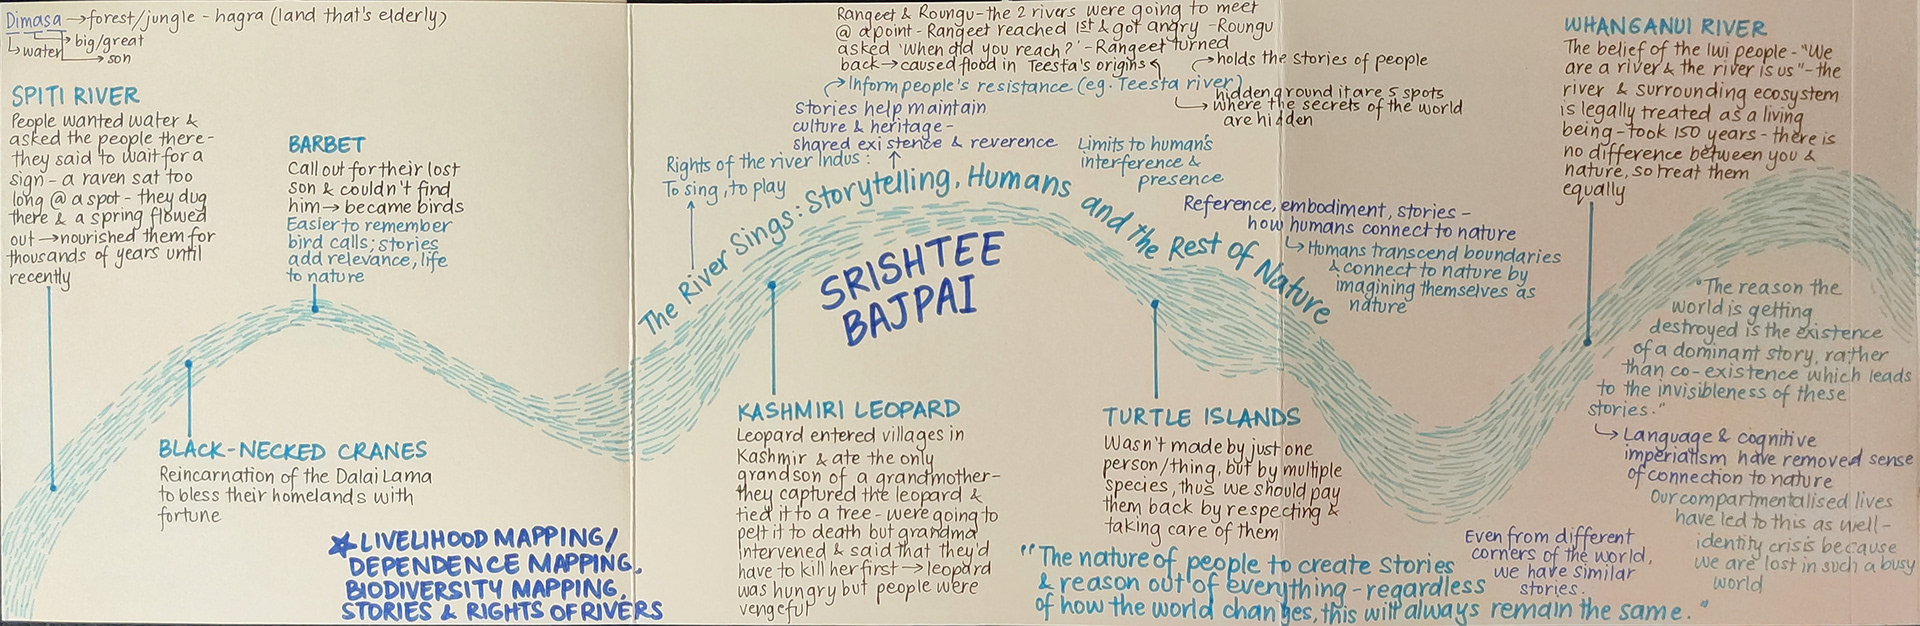 Dimasa → forest/jungle - hagra (land that's elderly)
↳ water → big/great
→ son
SPITI RIVER
People wanted water &
asked the people there -
they said to wait for a
sign - a raven sat too
long @ a spot - they dug
there & a spring flowed
out → nourished them for
thousands of years until
recently
BARBET
Call out for their lost
son & couldn't find
him → became birds
Easier to remember
bird calls; stories
add relevance, life
to nature
BLACK-NECKED CRANES
Reincarnation of the Dalai Lama
to bless their homelands with
fortune
LIVELIHOOD MAPPING/
DEPENDENCE MAPPING,
BIODIVERSITY MAPPING,
STORIES & RIGHTS OF RIVERS
Rangeet & Roungu - the 2 rivers were going to meet
@ a point - Rangeet reached 1st & got angry - Roungu
asked 'when did you reach?' - Rangeet turned
back → caused flood in Teesta's origins
→ Inform people's resistance (eg. Teesta river)
→ holds the stories of people
hidden ground it are 5 spots
↳ where the secrets of the world
are hidden
Stories help maintain
culture & heritage -
shared existence & reverence
Rights of the river Indus :
To sing, to play
Limits to human's
interference &
presence
The River Sings: Storytelling, Humans and the Rest of Nature
SRISHTEE
BAJPAI
Reference, embodiment, stories -
how humans connect to nature
↳ Humans transcend boundaries
& connect to nature by
imagining themselves as
nature
KASHMIRI LEOPARD
Leopard entered villages in
Kashmir & ate the only
grandson of a grandmother -
they captured the leopard &
tied it to a tree - were going to
pelt it to death but grandma
intervened & said that they'd
have to kill her first → leopard
was hungry but people were
vengeful
TURTLE ISLANDS
Wasn't made by just one
person/thing, but by multiple
species, thus we should pay
them back by respecting &
taking care of them
"The nature of people to create stories
& reason out of everything - regardless
of how the world changes, this will always remain the same."
WHANGANUI RIVER
The belief of the Iwi people - "We
are a river & the river is us" - the
river & surrounding ecosystem
is legally treated as a living
being - took 150 years - there is
no difference between you &
nature, so treat them
equally
"The reason the
world is getting
destroyed is the existence
of a dominant story, rather
than co-existence which leads
to the invisibleness of these
stories."
↳ Language & cognitive
imperialism have removed sense
of connection to nature
Our compartmentalised lives
have led to this as well -
identity crisis because
we are lost in such a busy
world
Even from different
corners of the world,
we have similar
stories.